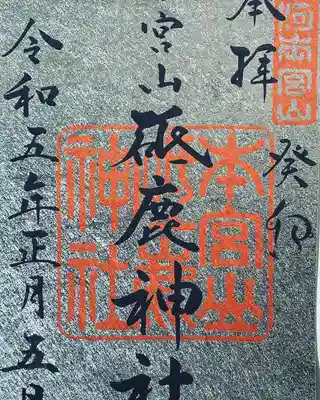 河本宮山
奉拝
癸卯
宮山砥鹿神社
本宮山
神社
令和五年正月五日